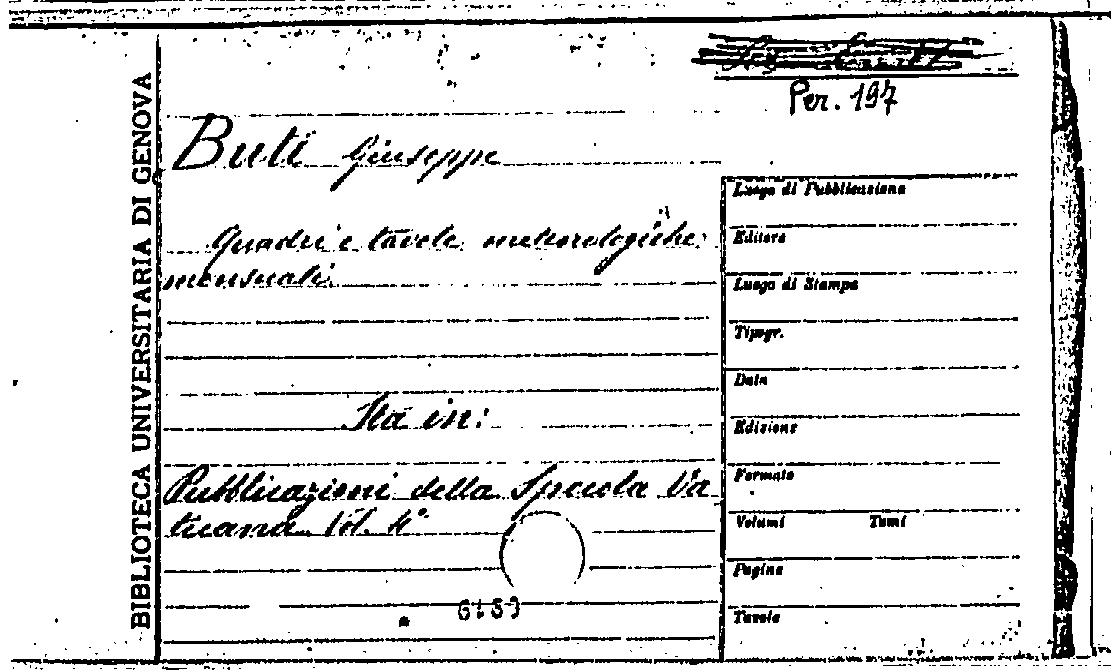 BIBLIOTECA UNIVERSITARIA DI GENOVA
Per. 197
Buti Giuseppe
Quadri e tavole meteorologiche
mensuali.
Sta in:
Pubblicazioni della Specola Va
ticana. Vol. 4°
Luogo di Pubblicazione
Editore
Luogo di Stampa
Tipogr.
Data
Edizione
Formato
Volumi Tomi
Pagine
Tavole